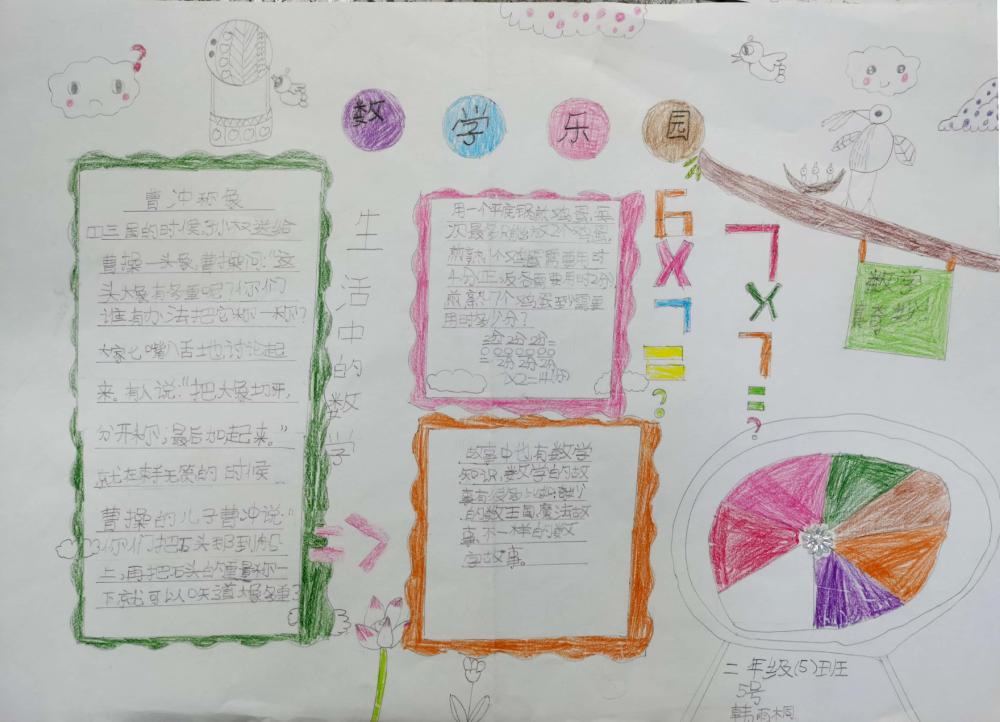 数学乐园
曹冲称象
曹操一头象,曹操问:“这
头大象有多重呢?你们
谁有办法把它称一称?
大家七嘴八舌地讨论起
来。有人说:“把大象切开,
分开称,最后加起来。”
就在束手无策的时候
曹操的儿子曹冲说“
你们把石头移到船
上,再把石头的重量称一
下就可以知道大象多重了
生活中的数学
用一个平底锅煎鸡蛋,每
次最多能放2个鸡蛋,
煎熟1个鸡蛋需要用时
4分(正反各需要用时2分)
煎熟7个鸡蛋至少需要
用时多少分?
2分 2分 2分
2分 2分 2分
6
×
7
=
?
7
×
7
=
?
数学
故事中也有数学
知识,数学的故
事有很多
的数王国魔法故
事,不一样的数
学故事。
二年级(5)班
5号
韩雨桐